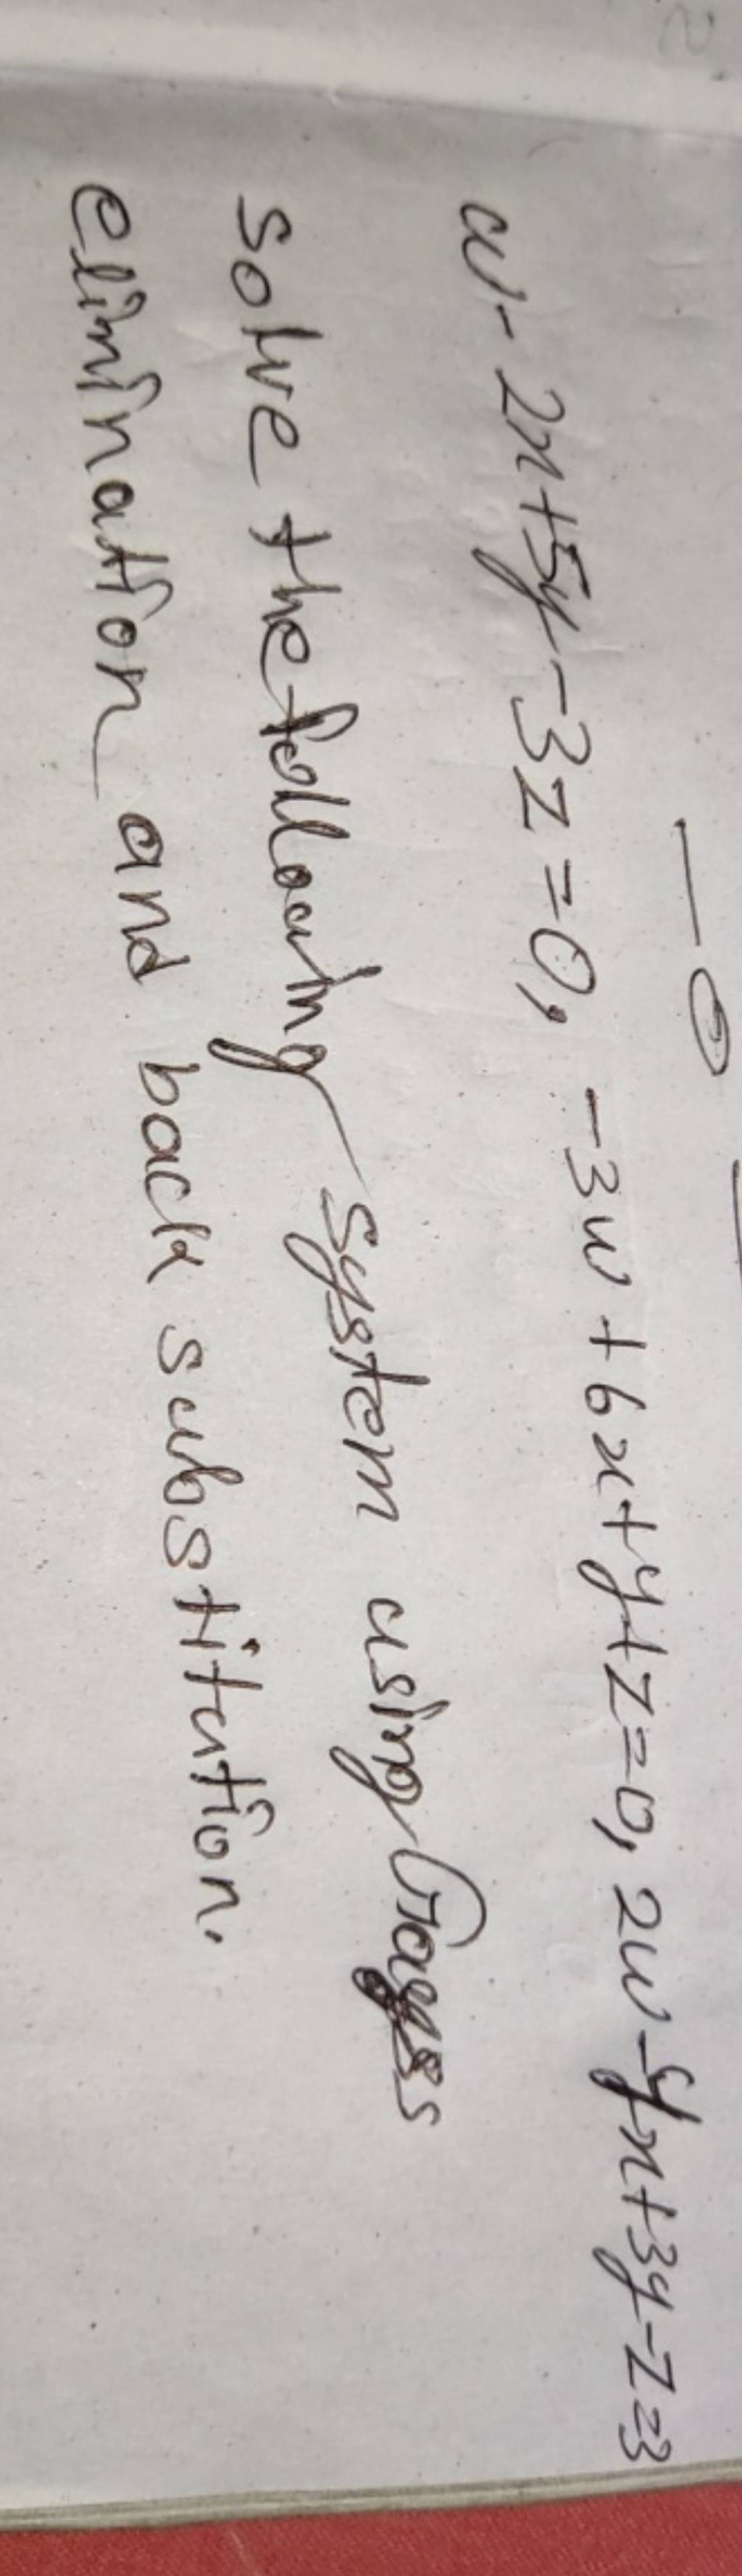 w - 2x + 5y - 3z = 0, -3w + 6x + y + z = 0, 2w - 4x + 3y - z = 3
solve the following system using Gauss
elimination and back substitution.